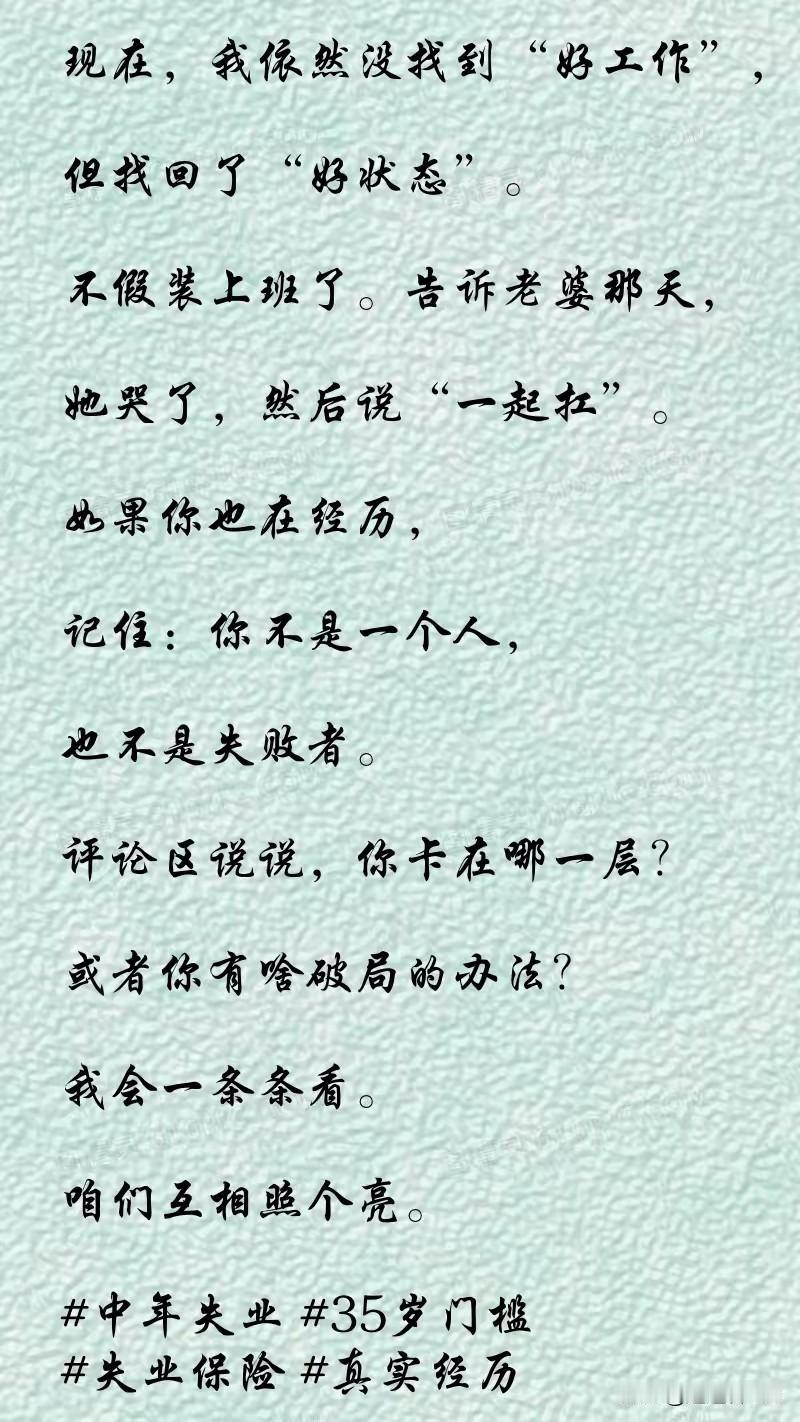 现在，我依然没找到“好工作”，
但找回了“好状态”。
不假装上班了。告诉老婆那天，
她哭了，然后说“一起扛”。
如果你也在经历，
记住：你不是一个人，
也不是失败者。
评论区说说，你卡在哪一层？
或者你有啥破局的办法？
我会一条条看。
咱们互相照个亮。
#中年失业 #35岁门槛
#失业保险 #真实经历